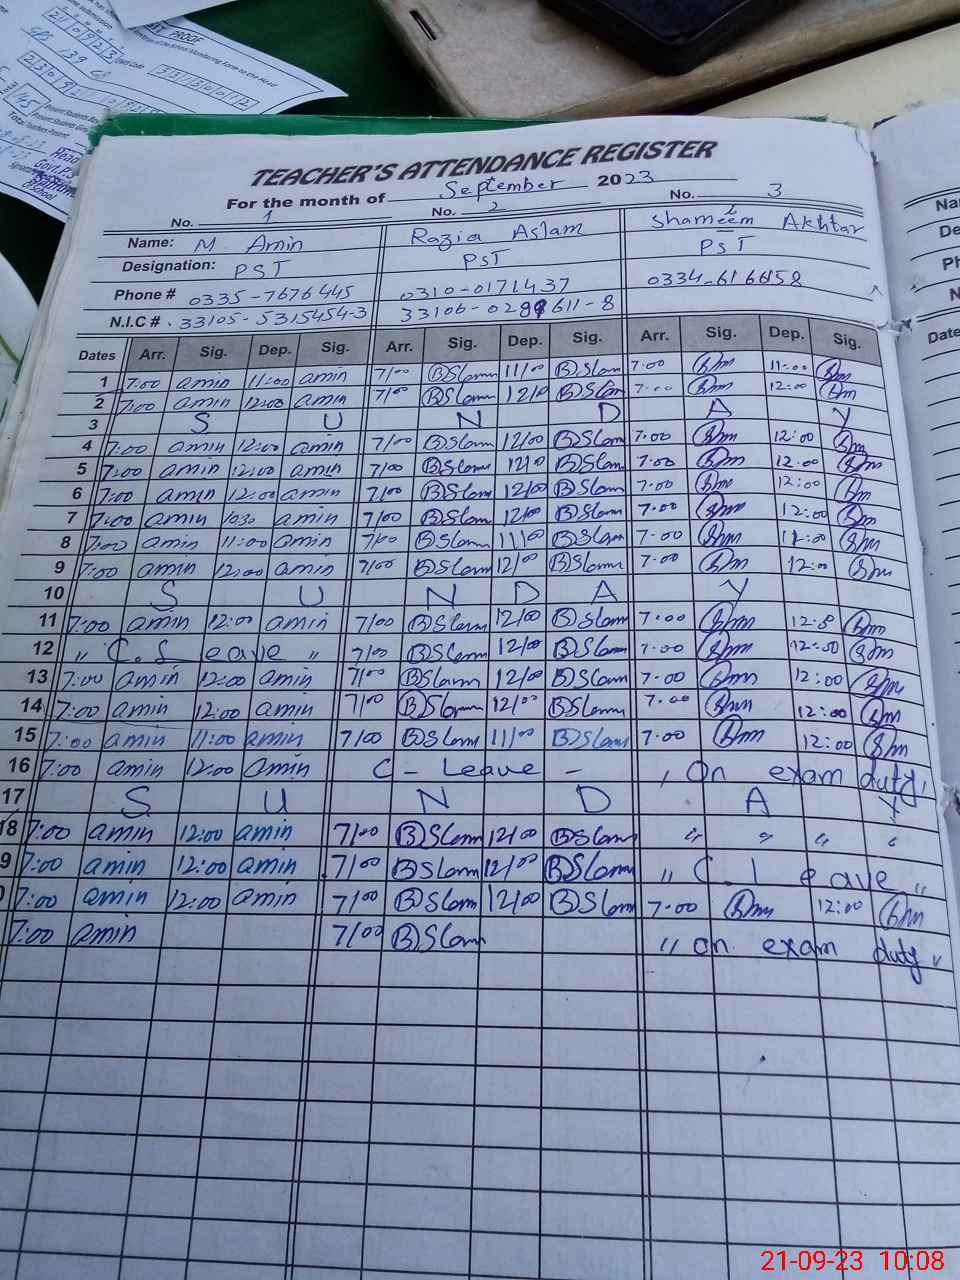 PROOF
TEACHER'S ATTENDANCE REGISTER
For the month of September 2023
No. 1 No. 2 No. 3
Name: M Amin Razia Aslam Shameem Akhtar
Designation: PST PST PST
Phone # 0335-7676445 0310-0171437
N.I.C # 33105-5315454-3
Dates Arr. Sig. Dep. Sig. Arr. Sig. Dep. Sig. Arr. Sig. Dep. Sig.
1 7:00 amin 11:00 amin 7/00 BSlam 11/00 BSlam 7.00 11:00
2 7:00 amin 12:00 amin 7/00 BSlam 12/00 BSlam 7.00 12:00
3 S U N D A Y
4 7:00 amin 12:00 amin 7/00 BSlam 12/00 BSlam 7.00 12:00
5 7:00 amin 12:00 amin 7/00 BSlam 12/00 BSlam 7.00 12.00
6 7:00 amin 12:00 amin 7/00 BSlam 12/00 BSlam 7.00 12:00
7 7:00 amin 1030 amin 7/00 BSlam 12/00 BSlam 7.00 12:00
8 7:00 amin 11:00 amin 7/00 BSlam 11/00 BSlam 7.00 11:00
9 7:00 amin 12:00 amin 7/00 BSlam 12/00 BSlam 7.00 12:00
10 S U N D A Y
11 7:00 amin 12:00 amin 7/00 BSlam 12/00 BSlam 7.00
12 " C.S Leave " 7/00 BSlam 12/00 BSlam 7.00 12:00
13 7:00 amin 12:00 amin 7/00 BSlam 12/00 BSlam 7.00 12:00
14 7:00 amin 12:00 amin 7/00 BSlam 12/00 BSlam 7.00 12:00
15 7:00 amin 11:00 amin 7/00 BSlam 11/00 BSlam 7.00 12:00
16 7:00 amin 12:00 amin C - Leave - " On exam duty "
17 S U N D A Y
18 7:00 amin 12:00 amin 7/00 BSlam 12/00 BSlam " " " "
9 7:00 amin 12:00 amin 7/00 BSlam 12/00 BSlam " C. leave "
0 7:00 amin 12:00 amin 7/00 BSlam 12/00 BSlam 7.00 12:00
7:00 amin 7/00 BSlam " On exam duty "
21-09-23 10:08